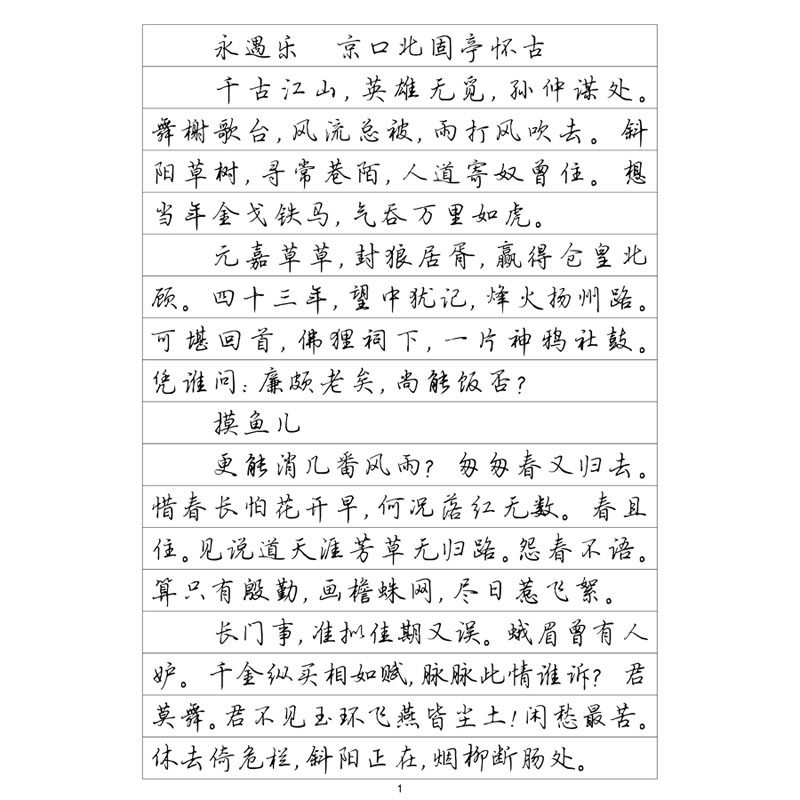 永遇乐 京口北固亭怀古
千古江山,英雄无觅,孙仲谋处。
舞榭歌台,风流总被,雨打风吹去。斜
阳草树,寻常巷陌,人道寄奴曾住。想
当年金戈铁马,气吞万里如虎。
元嘉草草,封狼居胥,赢得仓皇北
顾。四十三年,望中犹记,烽火扬州路。
可堪回首,佛狸祠下,一片神鸦社鼓。
凭谁问:廉颇老矣,尚能饭否?
摸鱼儿
更能消几番风雨?匆匆春又归去。
惜春长怕花开早,何况落红无数。春且
住。见说道天涯芳草无归路。怨春不语。
算只有殷勤,画檐蛛网,尽日惹飞絮。
长门事,准拟佳期又误。蛾眉曾有人
妒。千金纵买相如赋,脉脉此情谁诉?君
莫舞。君不见玉环飞燕皆尘土!闲愁最苦。
休去倚危栏,斜阳正在,烟柳断肠处。
1